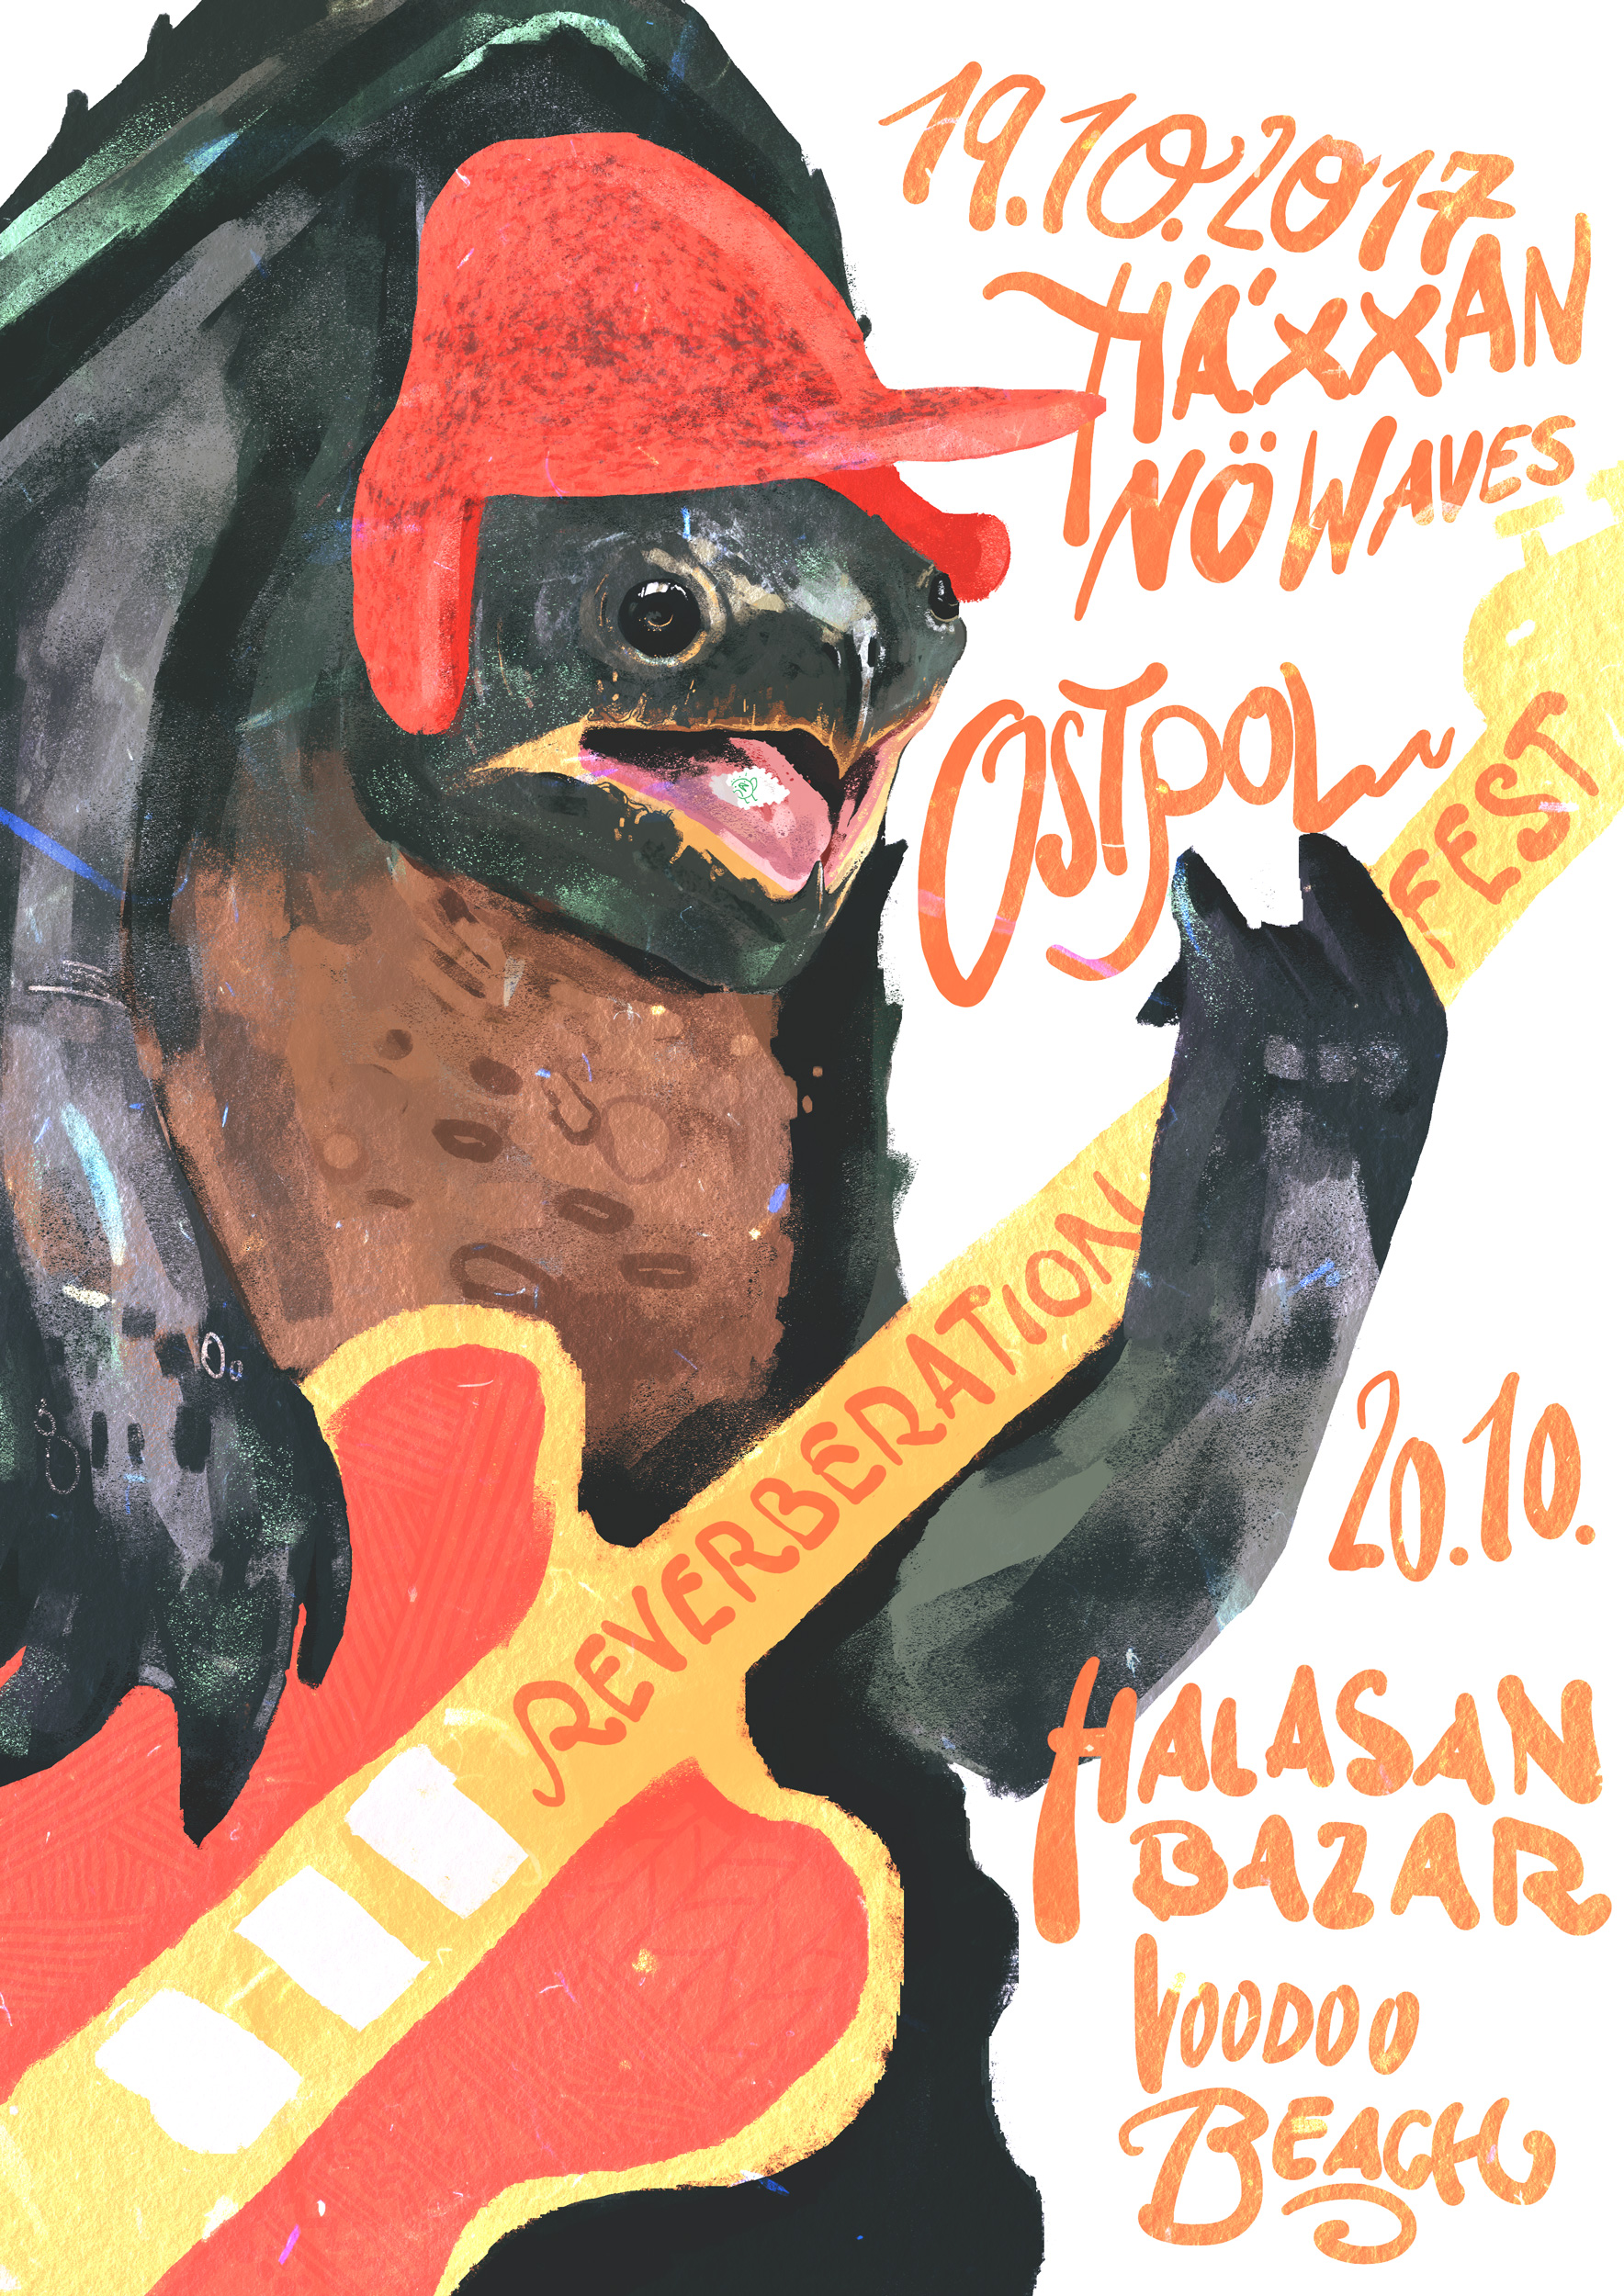 19.10.2017
HÄXXAN
NÖ WAVES
OSTPOL
REVERBERATION FEST
20.10.
HALASAN
BAZAR
VOODOO
BEACH